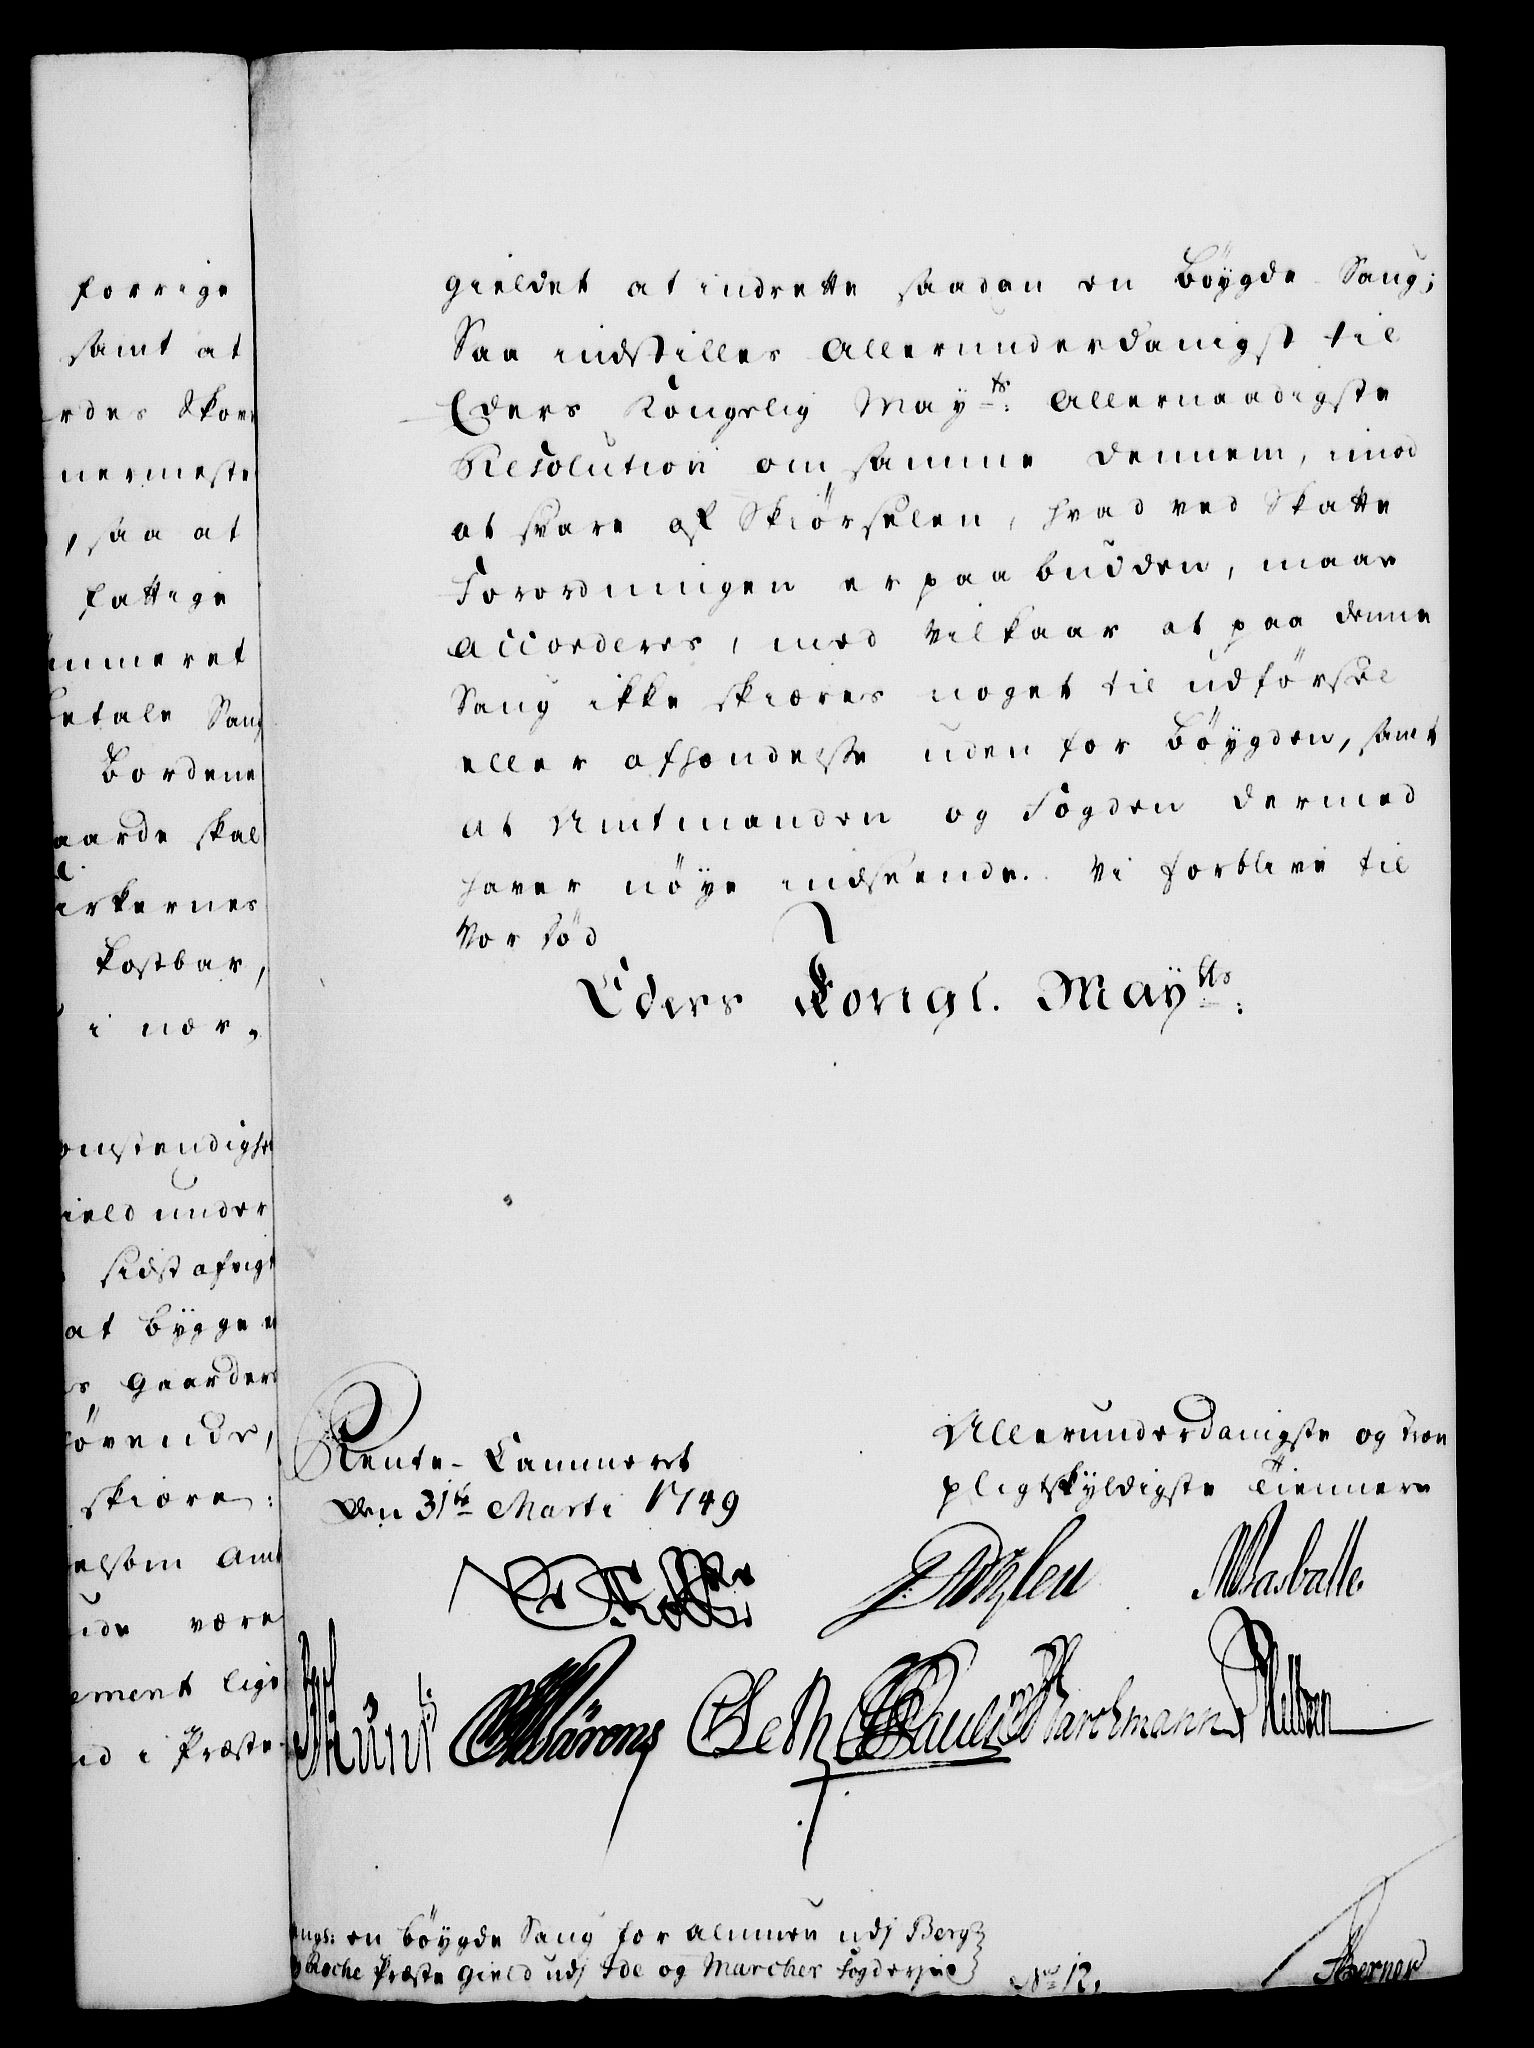 forrige
samt at
rdes Skov
nermeste
, saa at
fattige
mmeret
betale Saug
Bordene
aarde skal
irkernes
kostbar,
i nær,
omstendighe
ield under
sidst afvigt
at bygge
s gaarders
øvende,
skiære:
elsom Amt
ide være
ement lige
ud i Præste
gieldet at indrette saadan en Böygde Saug;
Saa indstilles Allerunderdanigst til
Eders Kongelig Mayts: Allernaadigste
Resolution om samme dennem, imod
at svare af Skiörselen, hvad ved Skatte
Forordningen er paabudden, maae
accorderes, med Vilkaar at paa denne
Saug ikke skiæres noget til udförsel
eller afhændelse uden for Böygden, samt
at Amtmanden og Fogden dermed
haver nöye indseende. Vi forblive til
Vor Död
Eders Kongl. Maytts:
Rente-Cammeret
den 31te Marti 1749
Allerunderdanigste og troe
pligtskyldigste Tiennere
Seth Pauli Barchmann
en böygde Saug for almuen udj Berg
Roche Præste Gield udj Ide og Marcher Fogderie
No 12,